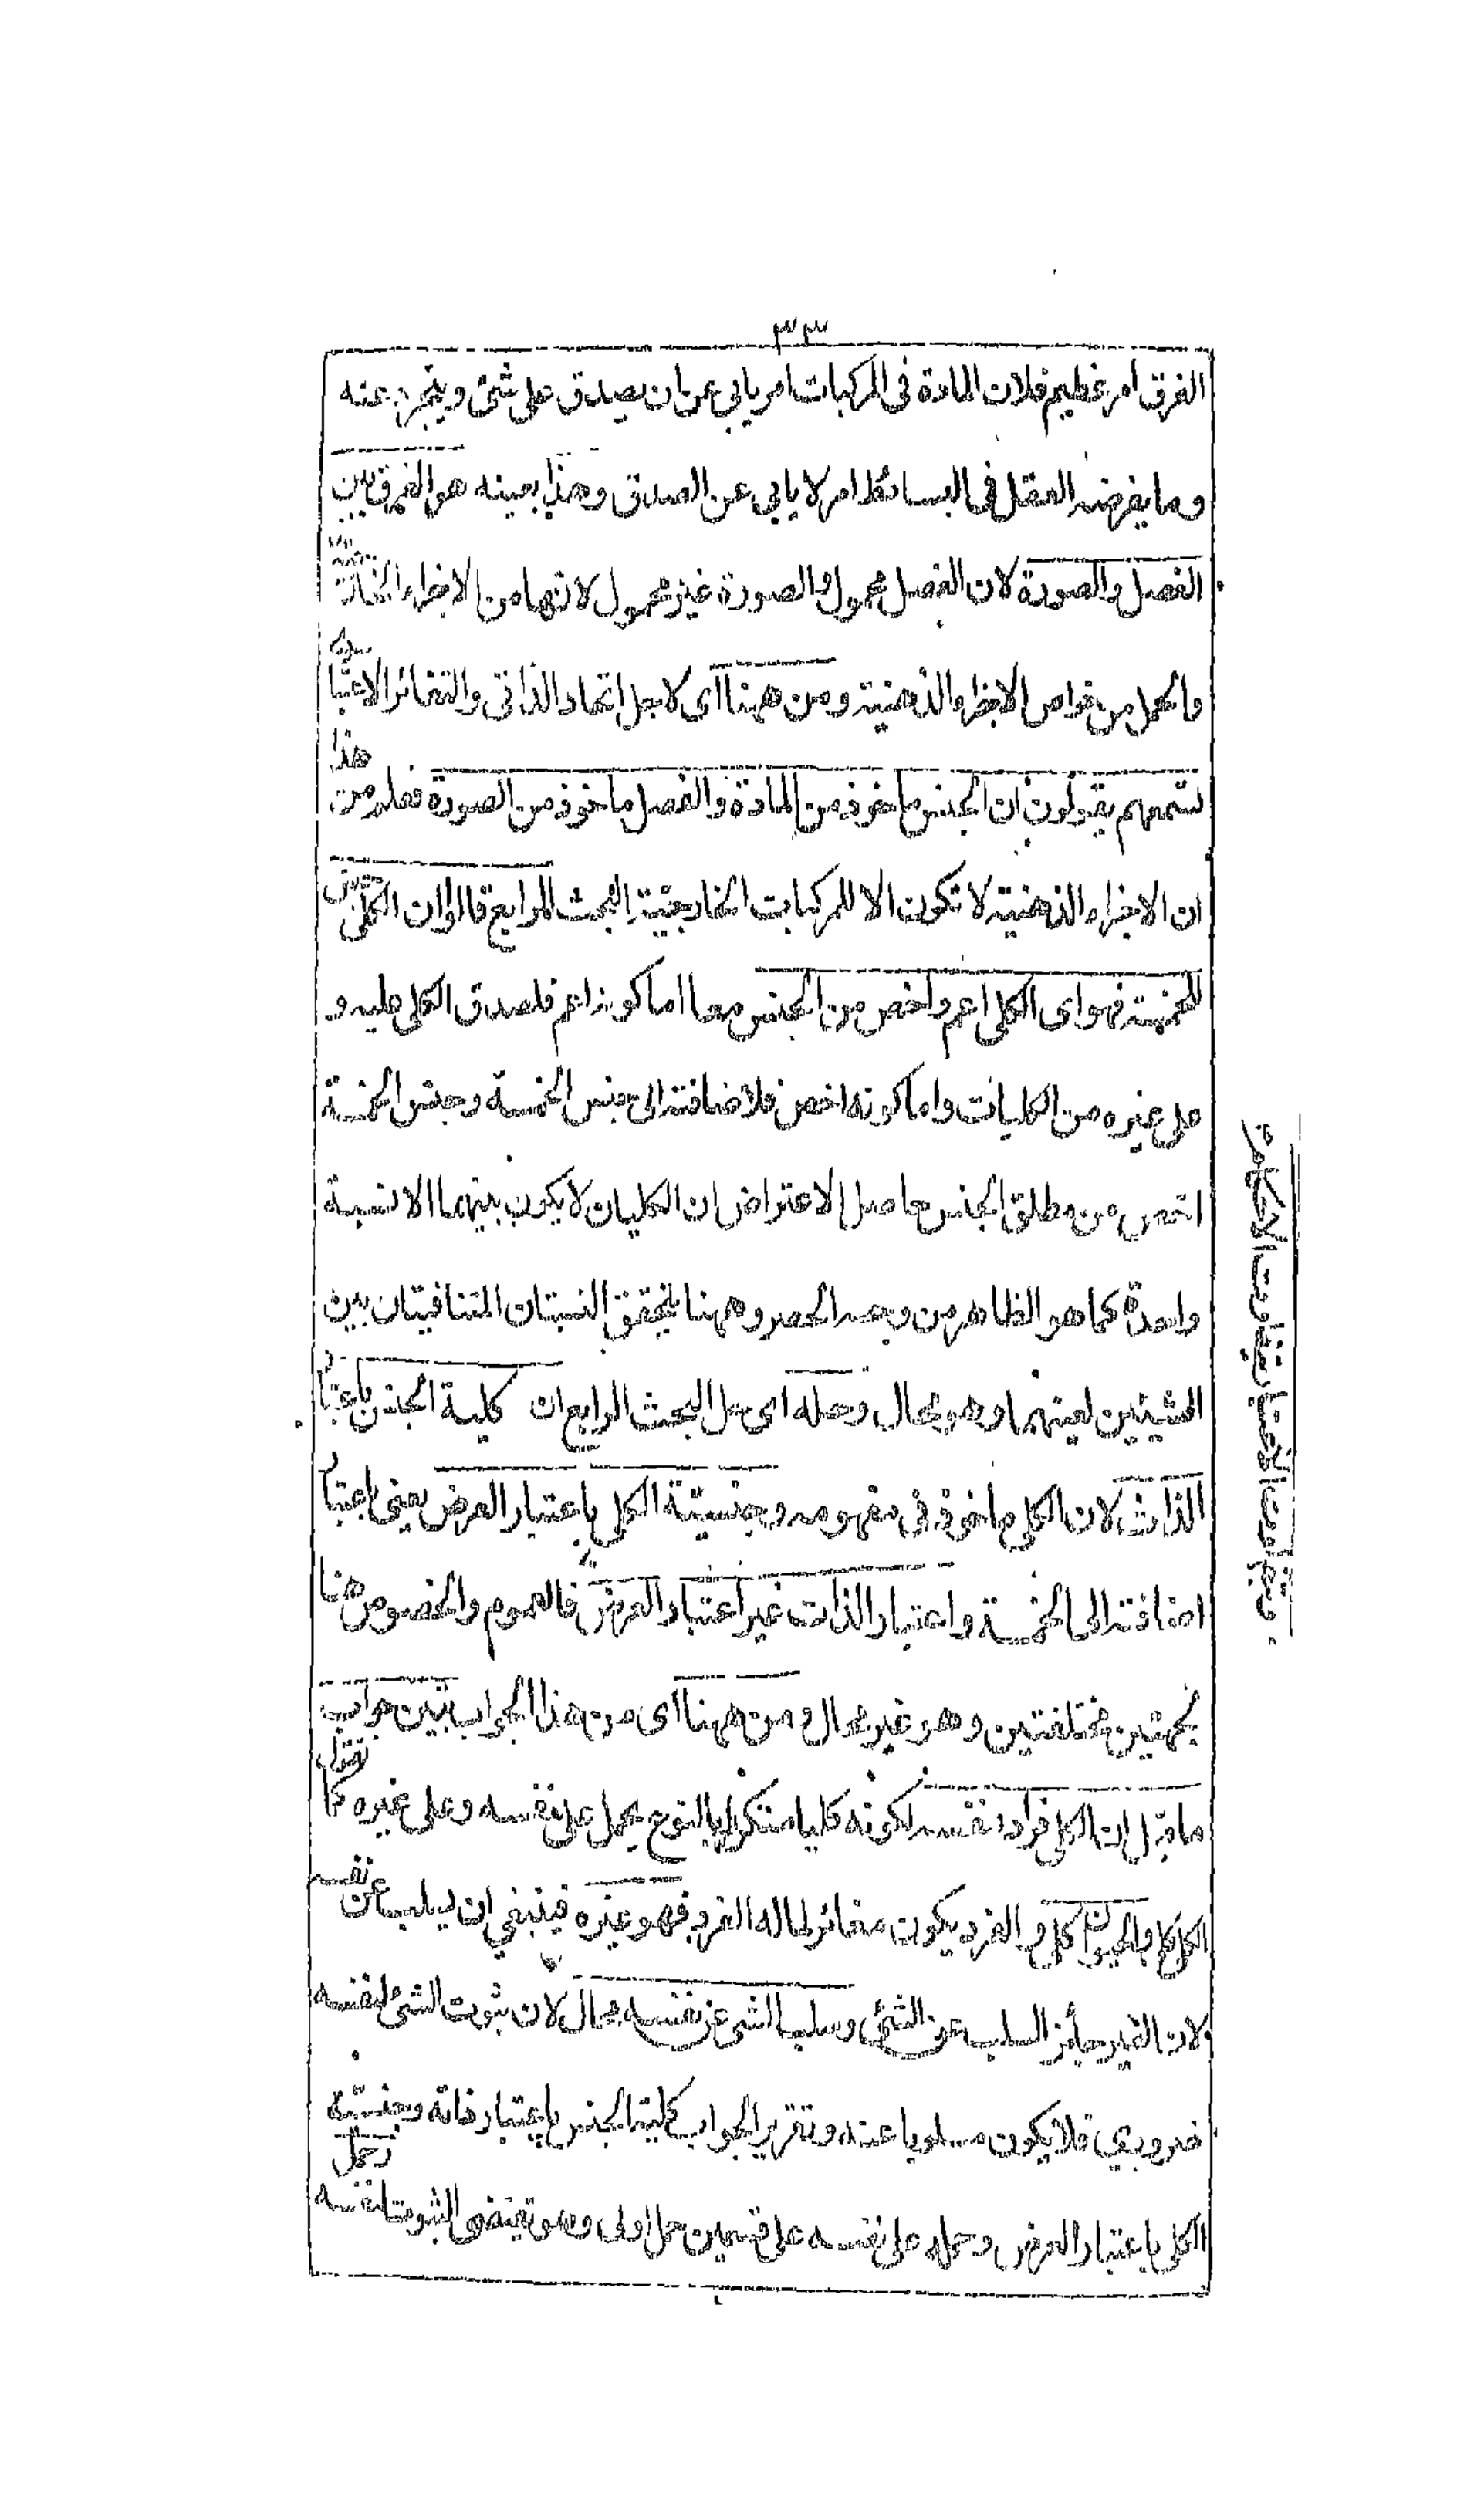 ٣٣
الفرق امر عظيم فلان المادة فى المركبات امر يابى عن ان يصدق على شئ وينجر عنه
وما يفرضه العقل فى البسائط امر لا يابى عن الصدق وهذا بعينه هو الفرق بين
الفصل والصورة لان الفصل محمول والصورة غير محمول لانها من الاجزاء الخارجية
والحمل من خواص الاجزاء الذهنية ومن ههنا اى لاجل اتحاد الذاتى والتغائر الاعتبارى
تسمعهم يقولون ان الجنس ماخوذ من المادة والفصل ماخوذ من الصورة فعلم من هذا
ان الاجزاء الذهنية لا تكون الا للمركبات الخارجية البحث الرابع قالوا ان الكلى جنس
للخمسة فهو اى الكلى اعم واخص من الجنس معا اما كونه اعم فلصدق الكلى عليه و
على غيره من الكليات واما كونه اخص فلاضافته الى جنس الخمسة وجنس الخمسة
اخص من مطلق الجنس حاصل الاعتراض ان الكليان لا يكون بينهما الا نسبة
واحدة كما هو الظاهر من وجه الحصر وههنا يتحقق النسبتان المتنافيتان بين
الشيئين لعينهما وهو محال وحله اى حل البحث الرابع ان كلية الجنس باعتبار
الذات لان الكلى ماخوذ فى مفهومه وجنسية الكلى باعتبار العرض يعنى باعتبار
اضافته الى الخمسة واعتبار الذات غير اعتبار العرض فالعموم والخصوص هنا
بجهتين مختلفتين وهو غير محال ومن ههنا اى من هذا الجواب تبين جواب
ما قيل ان الكلى فرد نفسه لكونه كليا متكررا بالنوع يحمل على نفسه وعلى غيره كما نقول
الكلى كلى والحيوان كلى والفرد يكون مغائرا لما له الفرد فهو غيره فينبغى ان يسلب عن نفسه
ولان الغير جائز السلب عن الشئ وسلب الشئ عن نفسه محال لان ثبوت الشئ لنفسه
ضرورى فلا يكون مسلوبا عنه وتقرير الجواب كلية الجنس باعتبار ذاته وجنسية
الكلى باعتبار العرض وحمله على نفسه على قسمين حمل اولى وهو يقتضى الثبوت لنفسه
باعتبار تفاوت الاحكام